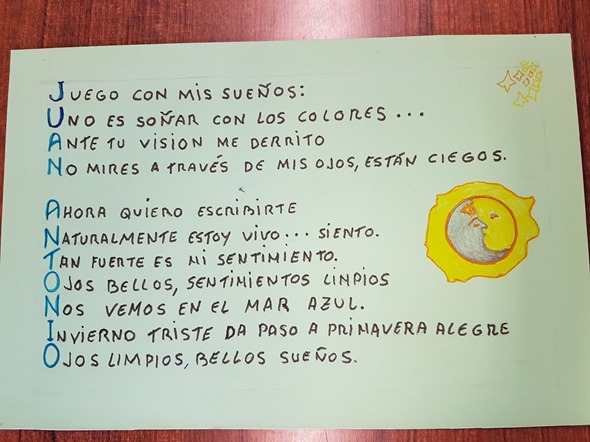 JUEGO CON MIS SUEÑOS:
UNO ES SOÑAR CON LOS COLORES...
ANTE TU VISION ME DERRITO
NO MIRES A TRAVÉS DE MIS OJOS, ESTÁN CIEGOS.
AHORA QUIERO ESCRIBIRTE
NATURALMENTE ESTOY VIVO... SIENTO.
TAN FUERTE ES MI SENTIMIENTO.
OJOS BELLOS, SENTIMIENTOS LINPIOS
NOS VEMOS EN EL MAR AZUL.
INVIERNO TRISTE DA PASO A PRIMAVERA ALEGRE
OJOS LIMPIOS, BELLOS SUEÑOS.